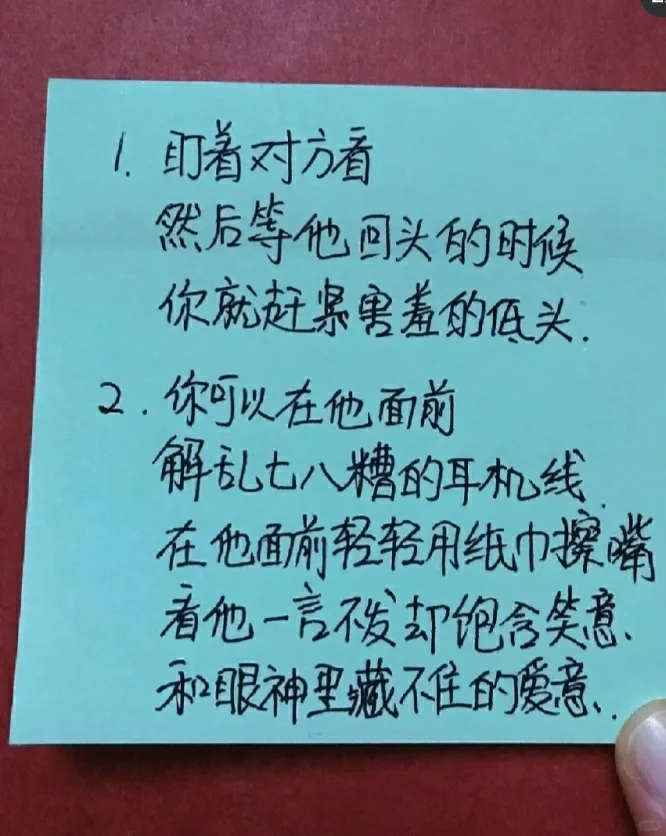 1. 盯着对方看
然后等他回头的时候
你就赶紧害羞的低头.
2. 你可以在他面前
解乱七八糟的耳机线
在他面前轻轻用纸巾擦嘴
看他一言不发却饱含笑意.
和眼神里藏不住的爱意..